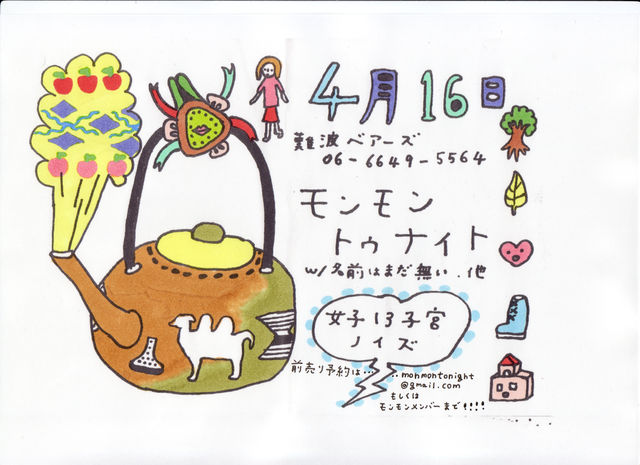 4月16日
難波ベアーズ
06-6649-5564
モンモン
トゥナイト
w/名前はまだ無い.他
女子13子宮
ノイズ
前売り予約は・・・
・・monmontonight
@gmail.com
もしくは
モンモンメンバーまで!!!!